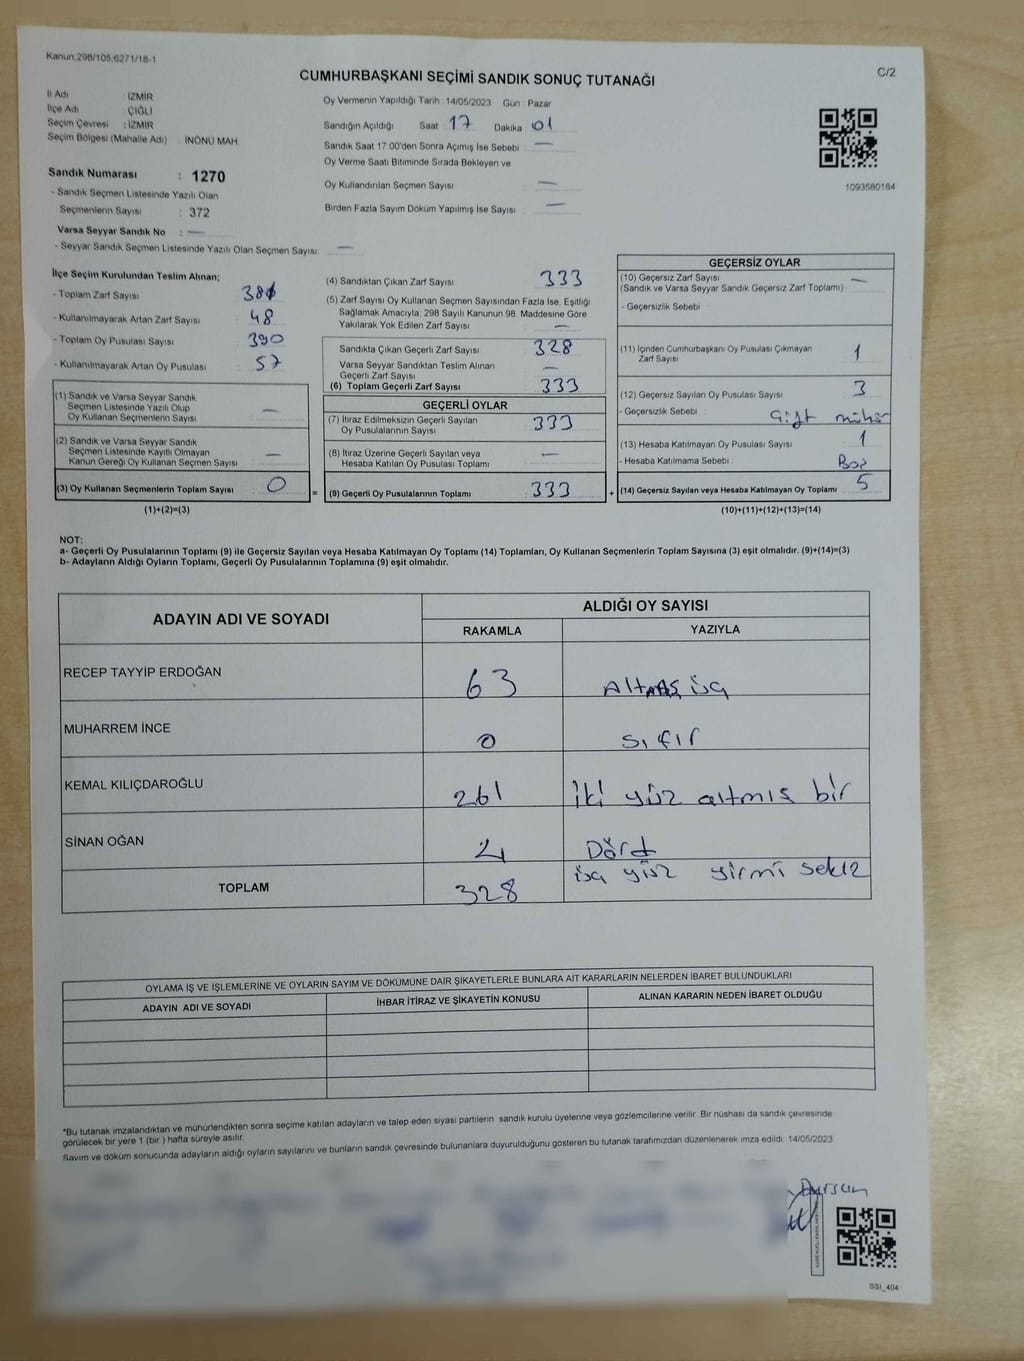 Kanun:298/105,6271/18-1
CUMHURBAŞKANI SEÇİMİ SANDIK SONUÇ TUTANAĞI
C/2
İl Adı : İZMİR
İlçe Adı : ÇİĞLİ
Seçim Çevresi : İZMİR
Seçim Bölgesi (Mahalle Adı) : İNÖNÜ MAH.
Sandık Numarası : 1270
- Sandık Seçmen Listesinde Yazılı Olan
Seçmenlerin Sayısı : 372
Varsa Seyyar Sandık No : —
- Seyyar Sandık Seçmen Listesinde Yazılı Olan Seçmen Sayısı: —
Oy Vermenin Yapıldığı Tarih :14/05/2023 Gün : Pazar
Sandığın Açıldığı Saat 17 Dakika 01
Sandık Saat 17:00'den Sonra Açmış İse Sebebi : —
Oy Verme Saati Bitiminde Sırada Bekleyen ve
Oy Kullandırılan Seçmen Sayısı : —
Birden Fazla Sayım Döküm Yapılmış İse Sayısı : —
1093580184
İlçe Seçim Kurulundan Teslim Alınan;
- Toplam Zarf Sayısı
- Kullanılmayarak Artan Zarf Sayısı : 48
- Toplam Oy Pusulası Sayısı : 390
- Kullanılmayarak Artan Oy Pusulası : 57
(1) Sandık ve Varsa Seyyar Sandık
Seçmen Listesinde Yazılı Olup
Oy Kullanan Seçmenlerin Sayısı : —
(2) Sandık ve Varsa Seyyar Sandık
Seçmen Listesinde Kayıtlı Olmayan
Kanun Gereği Oy Kullanan Seçmen Sayısı : —
(3) Oy Kullanan Seçmenlerin Toplam Sayısı : 0
(1)+(2)=(3)
=
(4) Sandıktan Çıkan Zarf Sayısı : 333
(5) Zarf Sayısı Oy Kullanan Seçmen Sayısından Fazla İse, Eşitliği
Sağlamak Amacıyla; 298 Sayılı Kanunun 98. Maddesine Göre
Yakılarak Yok Edilen Zarf Sayısı : —
Sandıkta Çıkan Geçerli Zarf Sayısı : 328
Varsa Seyyar Sandıktan Teslim Alınan
Geçerli Zarf Sayısı : —
(6) Toplam Geçerli Zarf Sayısı : 333
GEÇERLİ OYLAR
(7) İtiraz Edilmeksizin Geçerli Sayılan
Oy Pusulalarının Sayısı : 333
(8) İtiraz Üzerine Geçerli Sayılan veya
Hesaba Katılan Oy Pusulaları Toplamı : —
(9) Geçerli Oy Pusulalarının Toplamı : 333
+
GEÇERSİZ OYLAR
(10) Geçersiz Zarf Sayısı
(Sandık ve Varsa Seyyar Sandık Geçersiz Zarf Toplamı) : —
- Geçersizlik Sebebi :
(11) İçinden Cumhurbaşkanı Oy Pusulası Çıkmayan
Zarf Sayısı : 1
(12) Geçersiz Sayılan Oy Pusulası Sayısı : 3
- Geçersizlik Sebebi : Çift mühür
(13) Hesaba Katılmayan Oy Pusulası Sayısı : 1
- Hesaba Katılmama Sebebi : Boş
(14) Geçersiz Sayılan veya Hesaba Katılmayan Oy Toplamı : 5
(10)+(11)+(12)+(13)=(14)
NOT:
a- Geçerli Oy Pusulalarının Toplamı (9) ile Geçersiz Sayılan veya Hesaba Katılmayan Oy Toplamı (14) Toplamları, Oy Kullanan Seçmenlerin Toplam Sayısına (3) eşit olmalıdır. (9)+(14)=(3)
b- Adayların Aldığı Oyların Toplamı, Geçerli Oy Pusulalarının Toplamına (9) eşit olmalıdır.
ADAYIN ADI VE SOYADI
ALDIĞI OY SAYISI
RAKAMLA YAZIYLA
RECEP TAYYİP ERDOĞAN 63 Altmış üç
MUHARREM İNCE 0 Sıfır
KEMAL KILIÇDAROĞLU 261 iki yüz altmış bir
SİNAN OĞAN 4 Dörd
TOPLAM 328 üç yüz yirmi sekiz
OYLAMA İŞ VE İŞLEMLERİNE VE OYLARIN SAYIM VE DÖKÜMÜNE DAİR ŞİKAYETLERLE BUNLARA AİT KARARLARIN NELERDEN İBARET BULUNDUKLARI
ADAYIN ADI VE SOYADI İHBAR İTİRAZ VE ŞİKAYETİN KONUSU ALINAN KARARIN NEDEN İBARET OLDUĞU
*Bu tutanak imzalandıktan ve mühürlendikten sonra seçime katılan adayların ve talep eden siyasi partilerin sandık kurulu üyelerine veya gözlemcilerine verilir. Bir nüshası da sandık çevresinde
görülecek bir yere 1 (bir ) hafta süreyle asılır.
Sayım ve döküm sonucunda adayların aldığı oyların sayılarını ve bunların sandık çevresinde bulunanlara duyurulduğunu gösteren bu tutanak tarafımızdan düzenlenerek imza edildi. 14/05/2023
Dursun
SSI_404